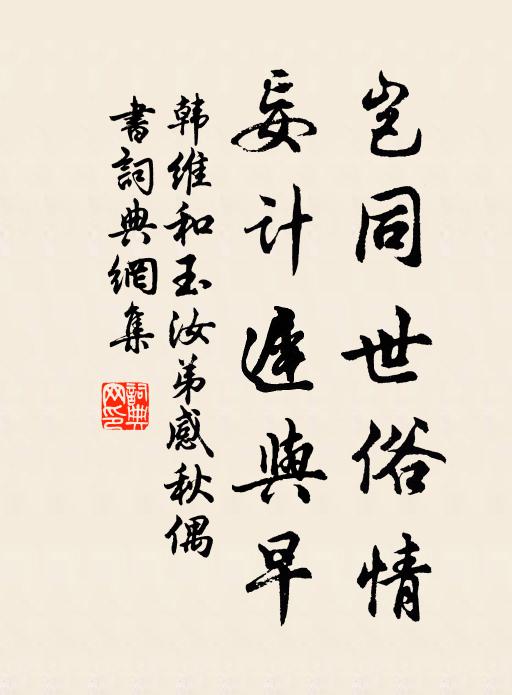 岂同世俗情
妄计遲與早
韩维和玉汝弟感秋偶
書詞典網集
詞典网印